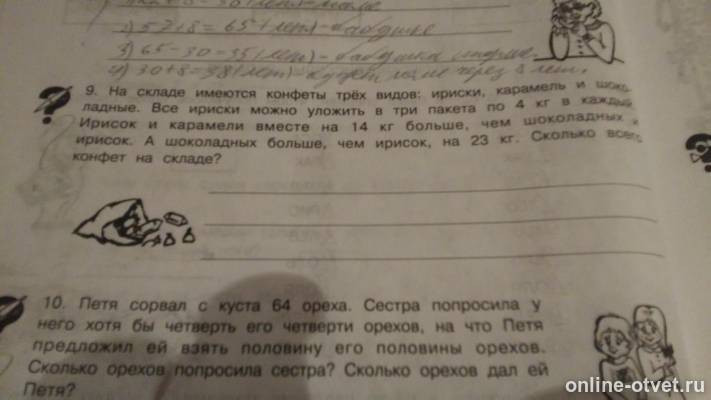 2) 57+8=65 (лет) – бабушке
3) 65-30=35 (лет) – бабушка старше.
4) 30+8=38 (лет) – будет через 8 лет.
9. На складе имеются конфеты трёх видов: ириски, карамель и шоко-
ладные. Все ириски можно уложить в три пакета по 4 кг в каждый.
Ирисок и карамели вместе на 14 кг больше, чем шоколадных и
ирисок. А шоколадных больше, чем ирисок, на 23 кг. Сколько всего
конфет на складе?
10. Петя сорвал с куста 64 ореха. Сестра попросила у
него хотя бы четверть его четверти орехов, на что Петя
предложил ей взять половину его половины орехов.
Сколько орехов попросила сестра? Сколько орехов дал ей
Петя?
online-otvet.ru